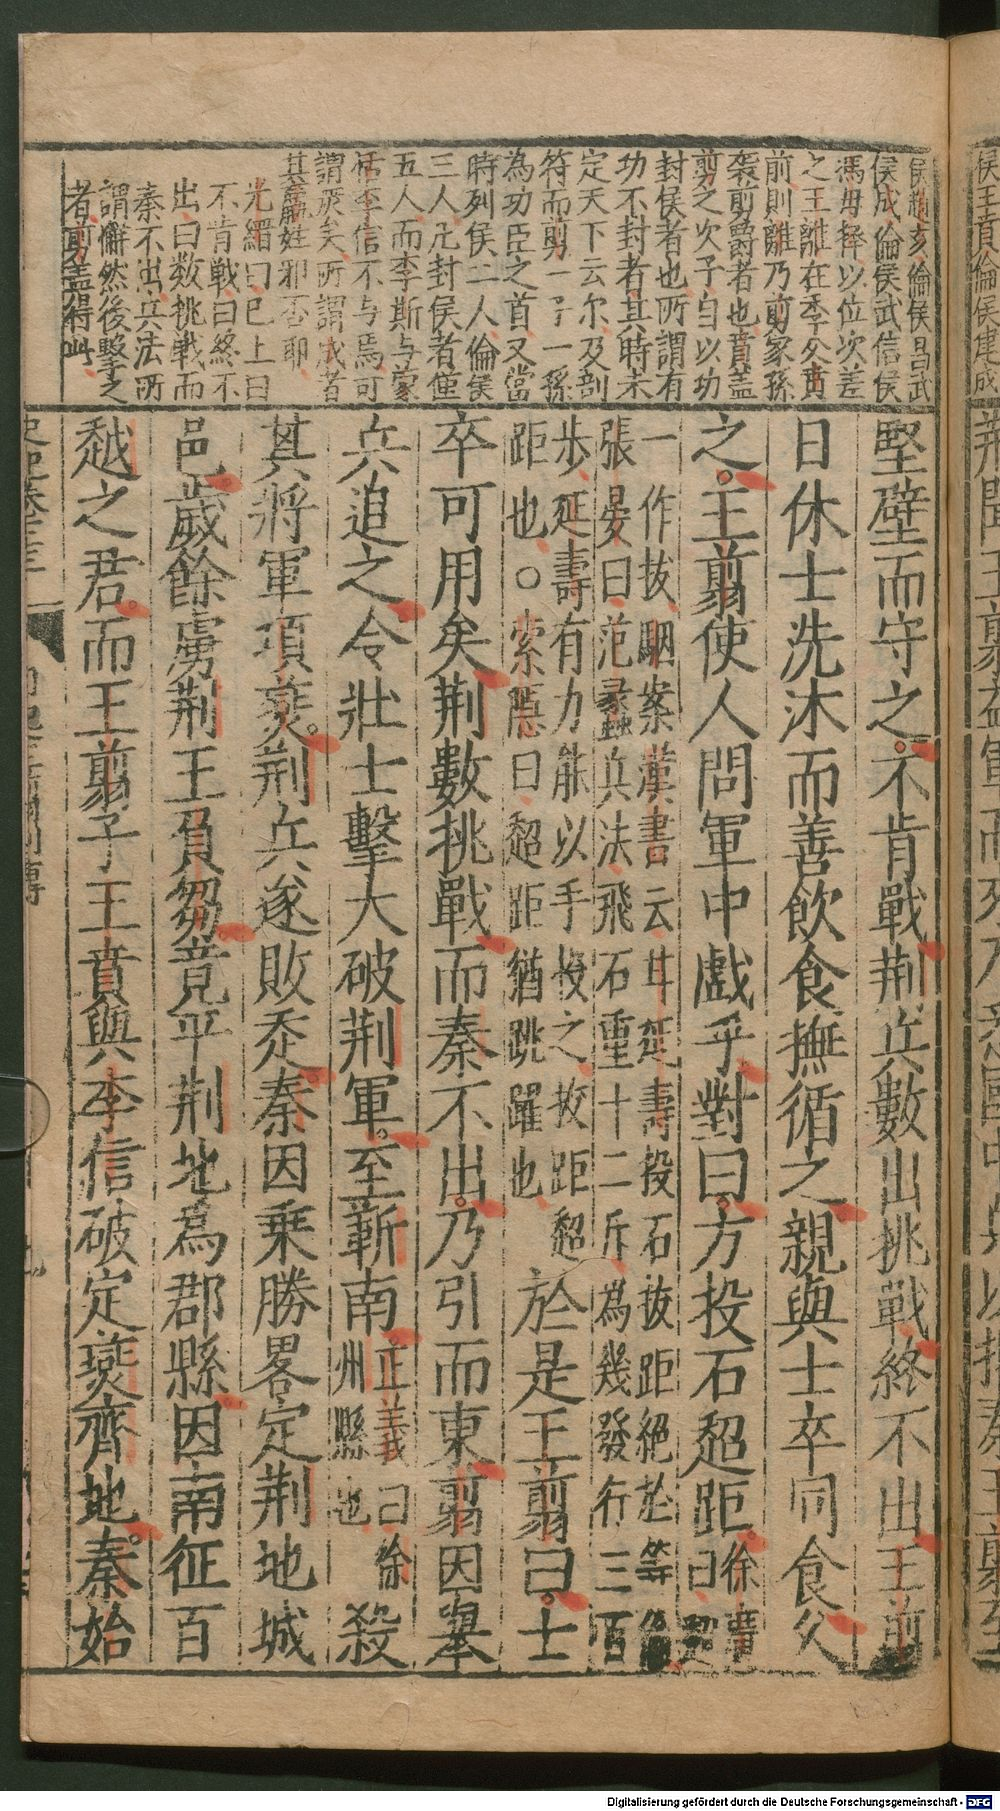 侯王賁倫侯建成
侯趙亥倫侯昌武
侯成倫侯武信侯
馮毋擇以位次差
之王離在李久賁
前則離乃剪家孫
襲剪爵者也賁盖
剪之次子自以功
封侯者也所謂有
功不封者其時未
定天下云尔及剖
符而剪一子一孫
為功臣之首又當
時列侯二人倫侯
三人凡封侯者僅
五人而李斯与蒙
恬李信不与焉可
謂疾矣所謂成者
其嬴姓邪否耶
光縉曰已上曰
不肯戰曰終不
出曰数挑戰而
秦不出兵法所
謂懈然後擊之
者剪盖得此
堅壁而守之不肯戰荆兵數出挑戰終不出王翦
日休士洗沐而善飲食撫循之親與士卒同食久
之王翦使人問軍中戲乎對曰方投石超距徐廣曰超
一作拔駰案漢書云甘延壽投石拔距絕於等倫
張晏曰范蠡兵法飛石重十二斤為幾發行三百
步延壽有力能以手投之拔距超
距也○索隱曰超距猶跳躍也
於是王翦曰士
卒可用矣荆數挑戰而秦不出乃引而東翦因舉
兵追之令壯士擊大破荆軍至蘄南正義曰徐州縣也殺
其將軍項燕荆兵遂敗走秦因乗勝畧定荆地城
邑歲餘虜荆王負芻竟平荆地爲郡縣因南征百
越之君而王翦子王賁與李信破定燕齊地秦始
Digitalisierung gefördert durch die Deutsche Forschungsgemeinschaft - DFG